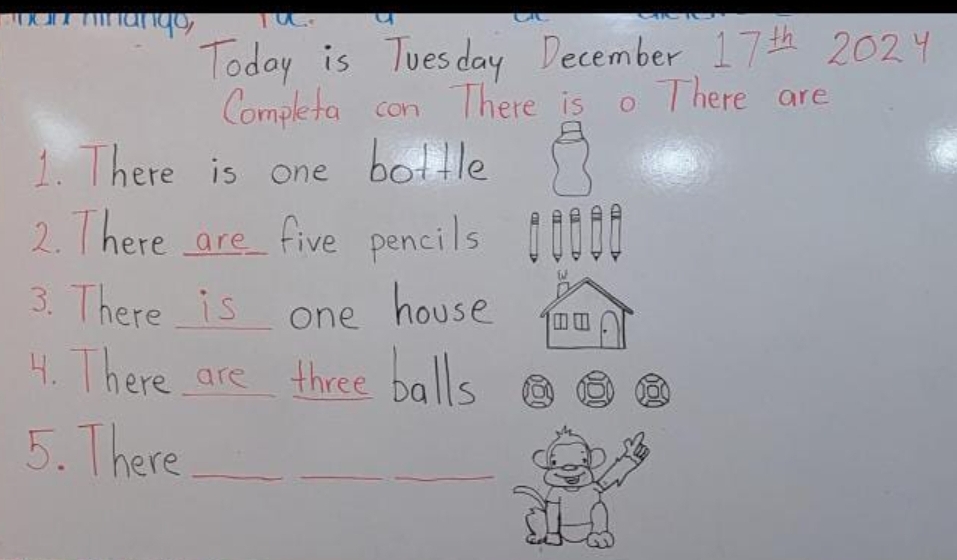 Today is Tuesday December 17th 2024
Completa con There is o There are
1. There is one bottle
2. There are five pencils
3. There is one house
4. There are three balls
5. There ___ ___ ___